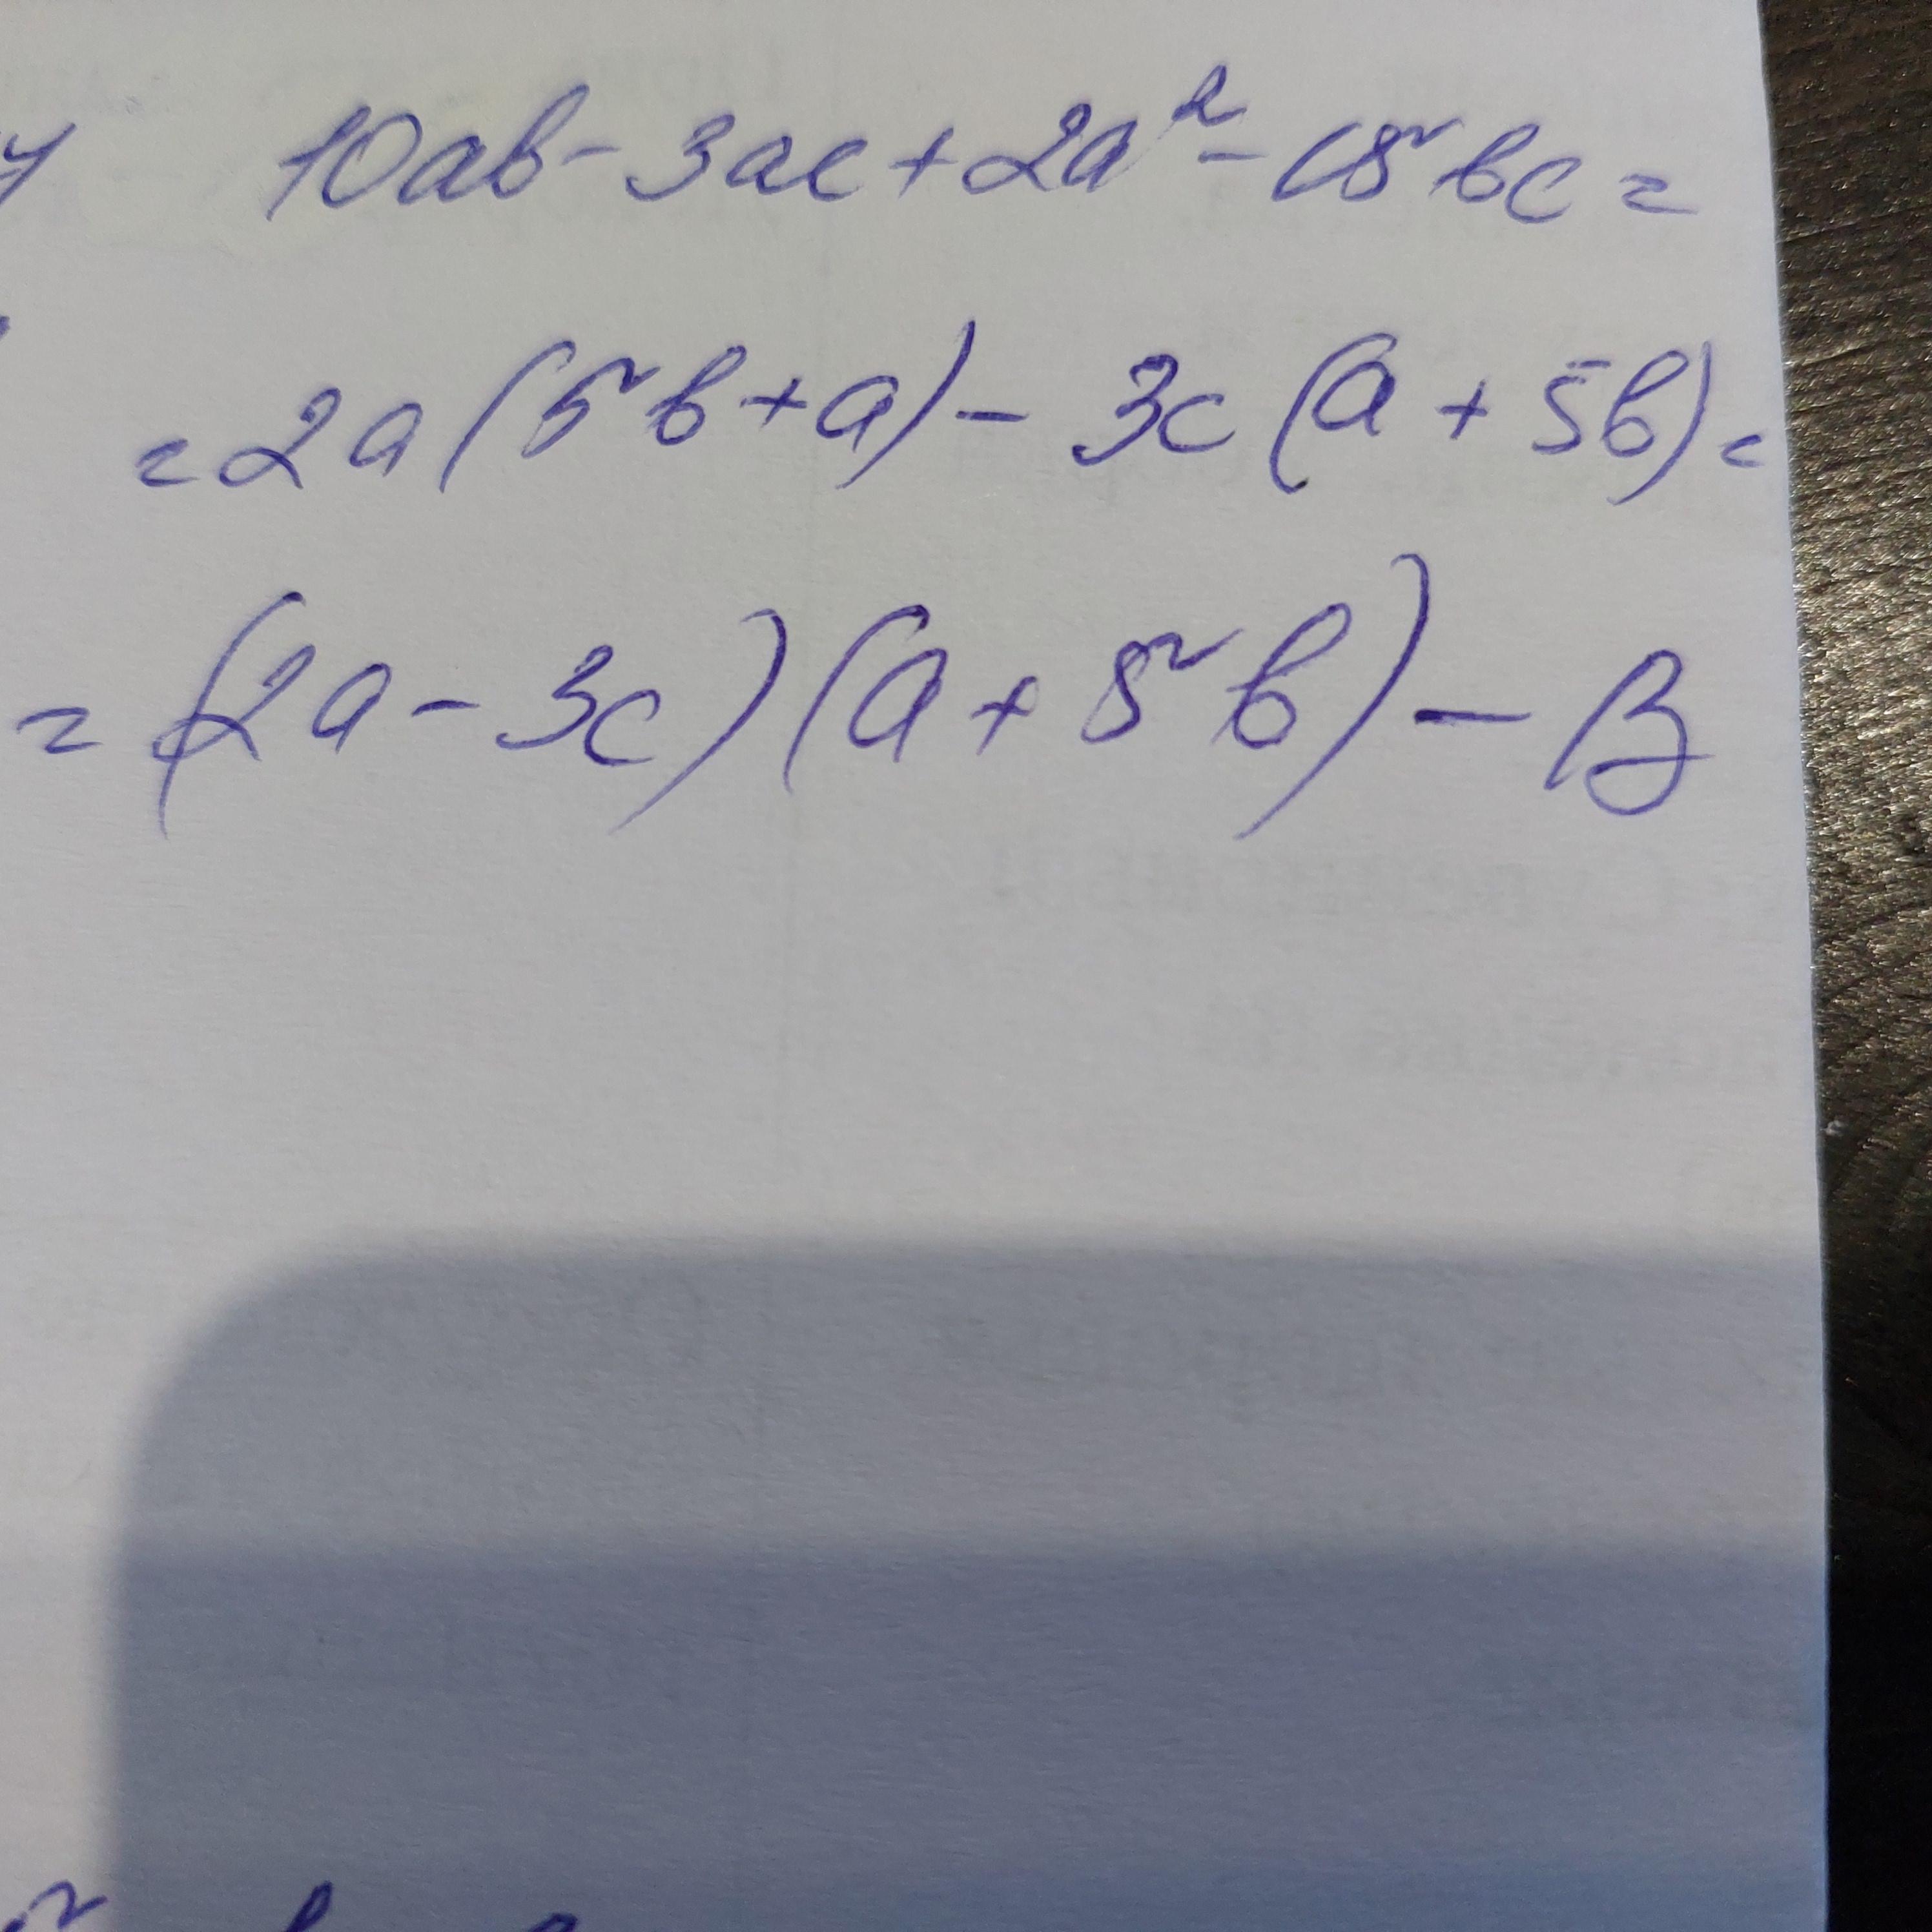 10ab - 3ac + 2a² - 15bc =
= 2a(5b + a) - 3c(a + 5b) =
= (2a - 3c)(a + 5b) - B